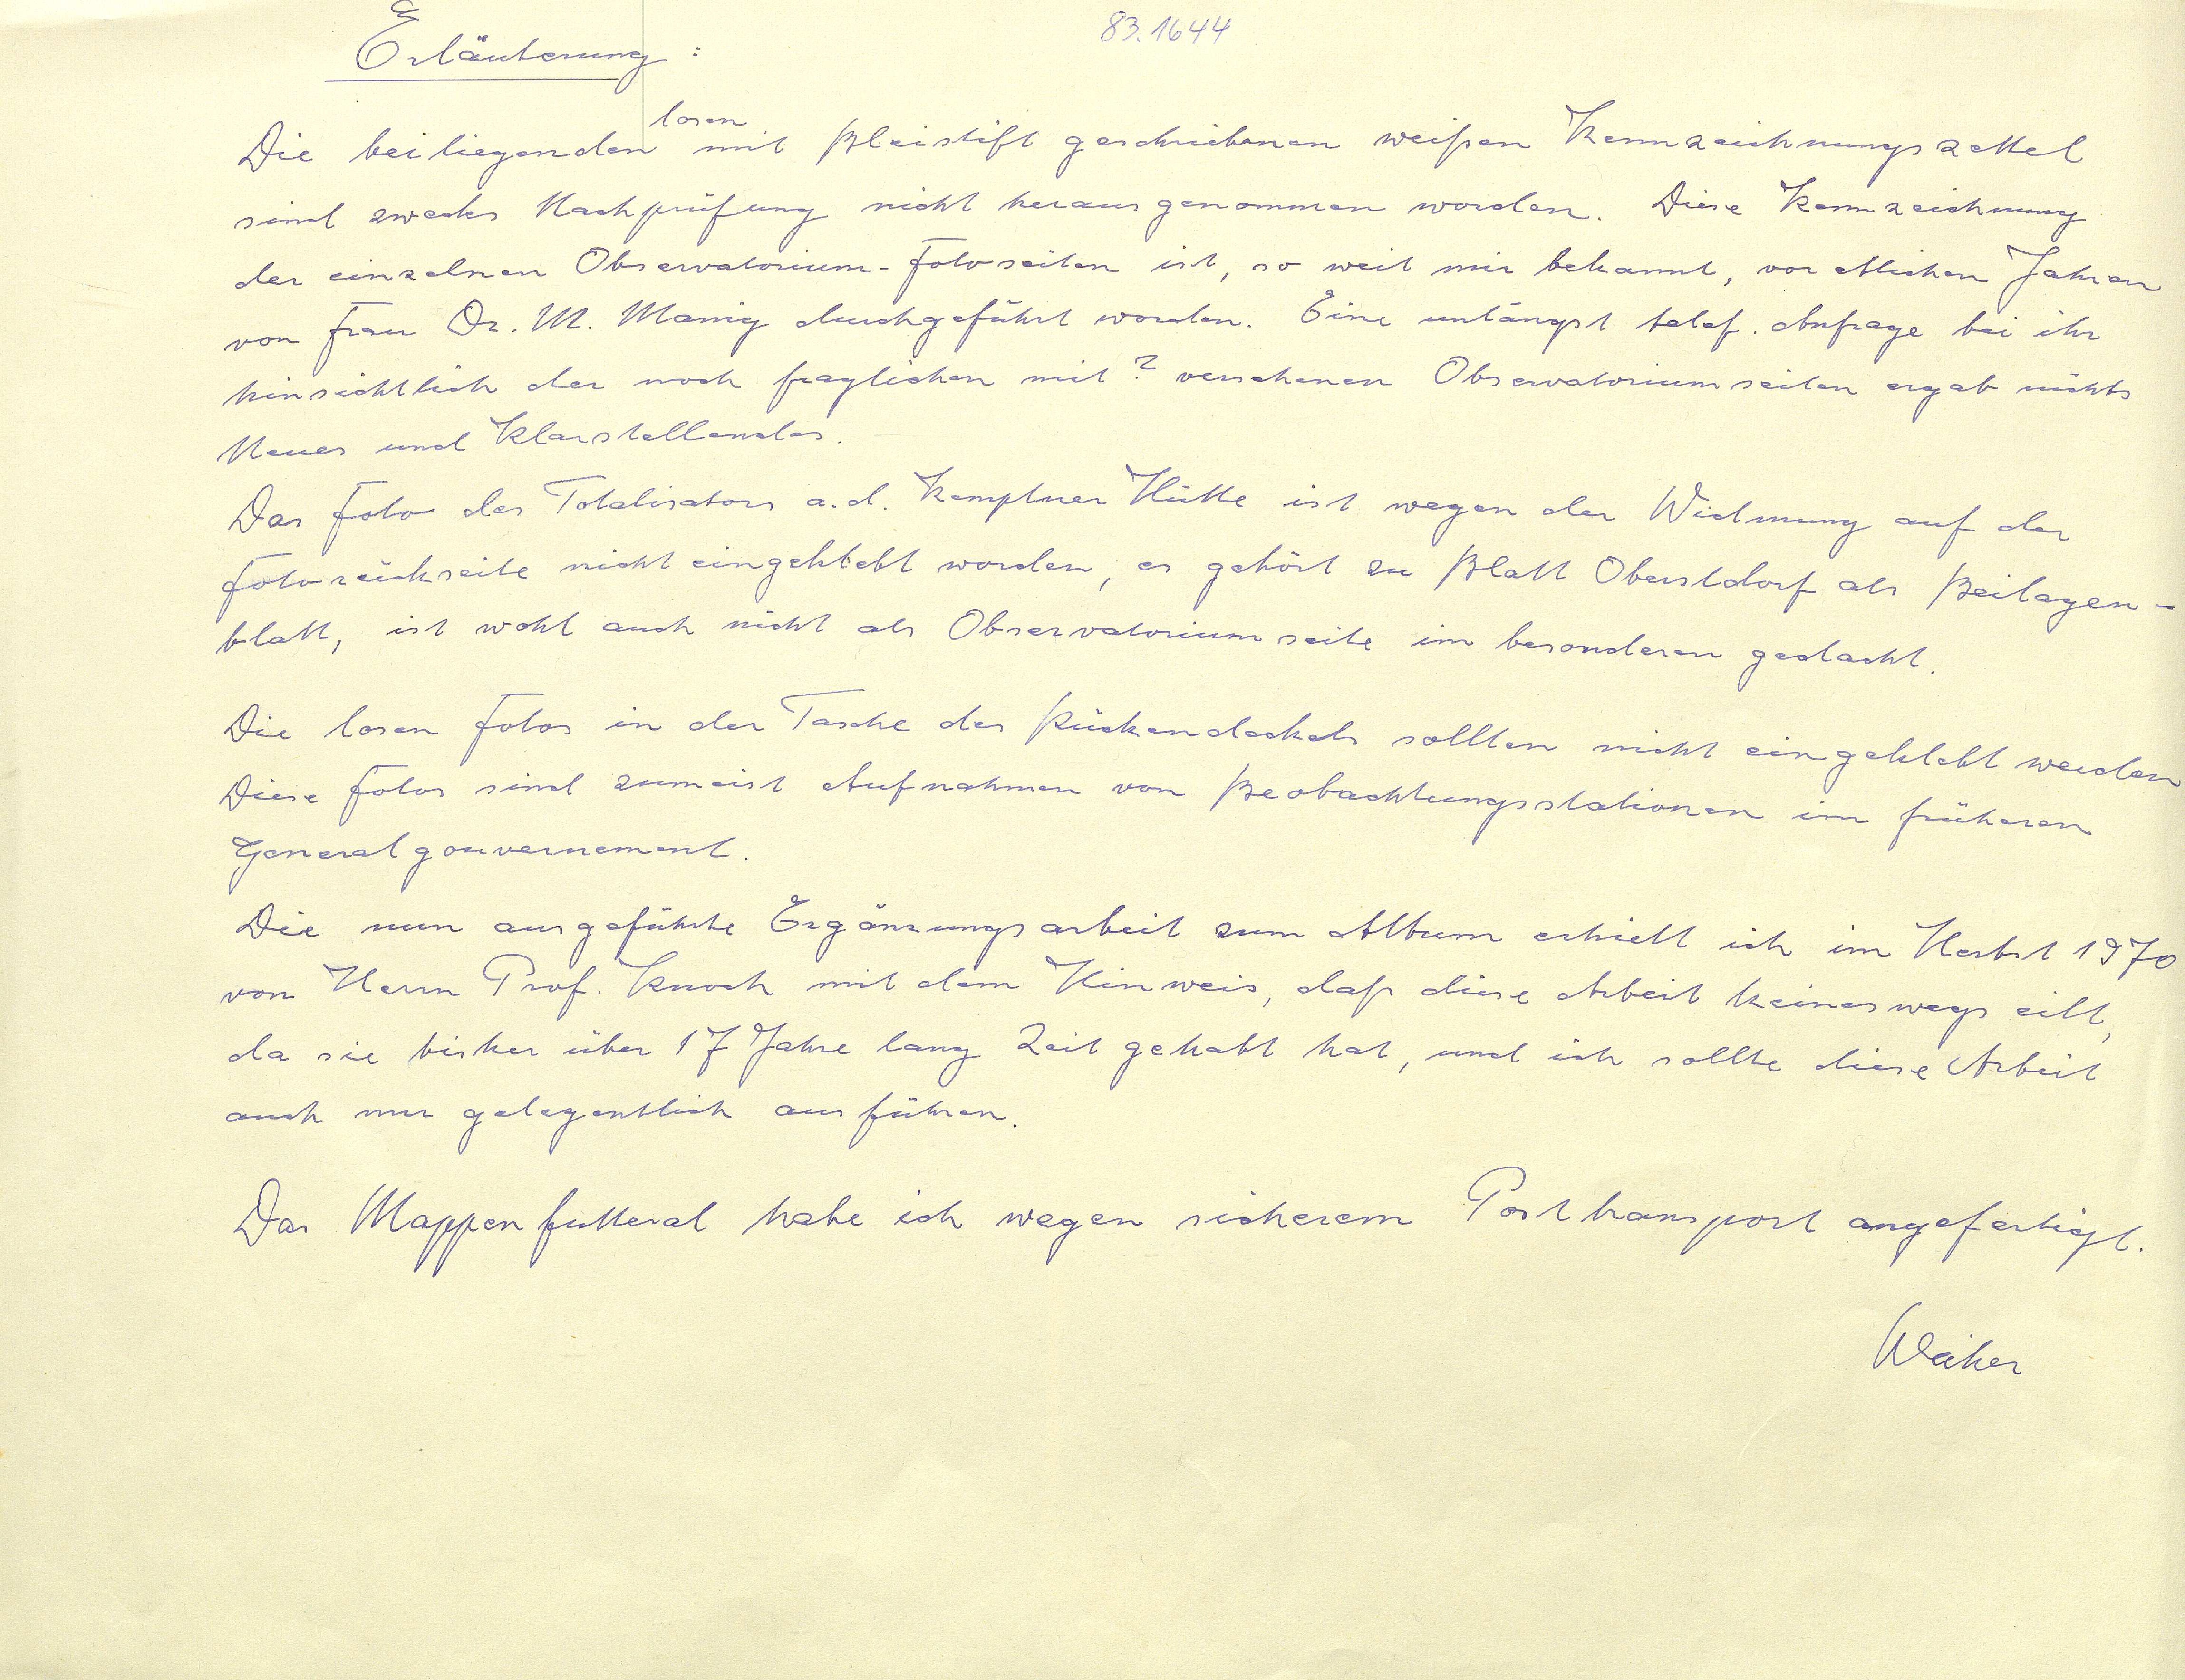 83.1644
Erläuterung:
losen
Die beiliegenden mit Bleistift geschriebenen weißen Kennzeichnungszettel
sind zwecks Nachprüfung nicht herausgenommen worden. Diese Kennzeichnung
der einzelnen Observatorium-Fotoseiten ist, so weit mir bekannt, vor etlichen Jahren
von Frau Dr. M. durchgeführt worden. Eine unlängst telef. Anfrage bei ihr
hinsichtlich der noch fraglichen mit ? versehenen Observatoriumseiten ergab nichts
Neues und Klarstellendes.
Das Foto des Totalisators a.d. Kemptner Hütte ist wegen der Widmung auf der
Fotorückseite nicht eingeklebt worden, es gehört zu Blatt Oberstdorf als Beilagen-
blatt, ist wohl auch nicht als Observatoriumseite im besonderen gedacht.
Die losen Fotos in der Tasche des Rückendeckels sollten nicht eingeklebt werden
Diese Fotos sind zumeist Aufnahmen von Beobachtungsstationen im früheren
Generalgouvernement.
Die nun ausgeführte Ergänzungsarbeit zum Album erhielt ich im Herbst 1970
von Herrn Prof. Knoch mit dem Hinweis, daß diese Arbeit keineswegs eilt,
da sie bisher über 17 Jahre lang Zeit gehabt hat, und ich sollte diese Arbeit
auch nur gelegentlich ausführen.
Das Mappenfutteral habe ich wegen sicherem Posttransport angefertigt.